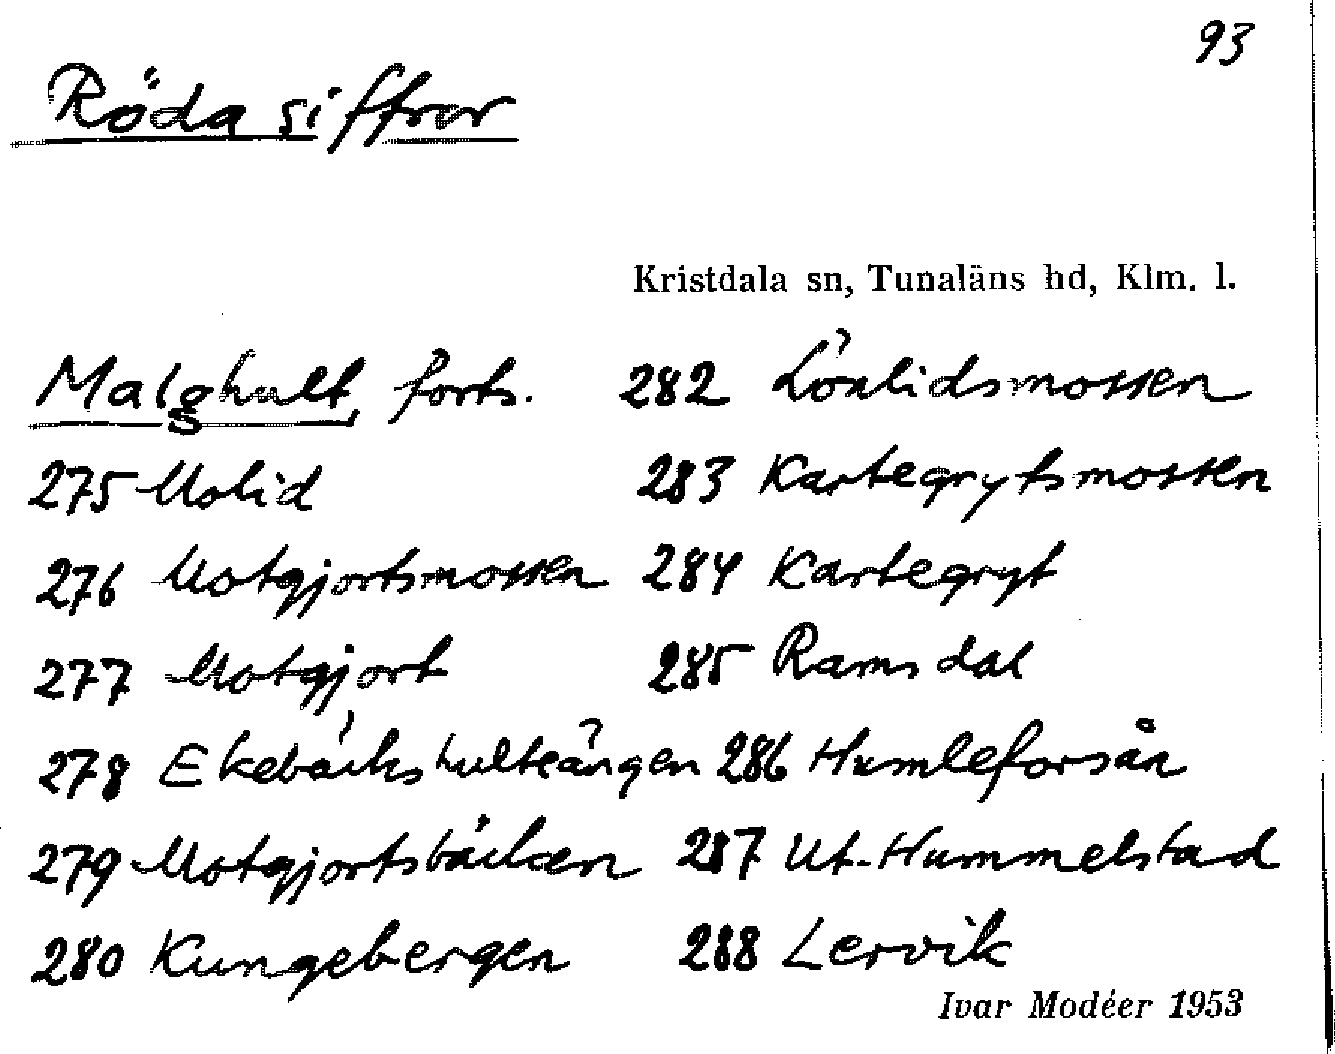 93
Röda siffror
Kristdala sn, Tunaläns hd, Klm. l.
Malghult, forts.
275 Molid
276 Motgjortsmossen
277 Motgjort
278 Ekebäckshulteängen
279 Motgjortsbäcken
280 Kungebergen
282 Lönlidsmossen
283 Kartegrytsmossen
284 Kartegryt
285 Ramsdal
286 Humleforsån
287 Ut-Hummelstad
288 Lervik
Ivar Modéer 1953